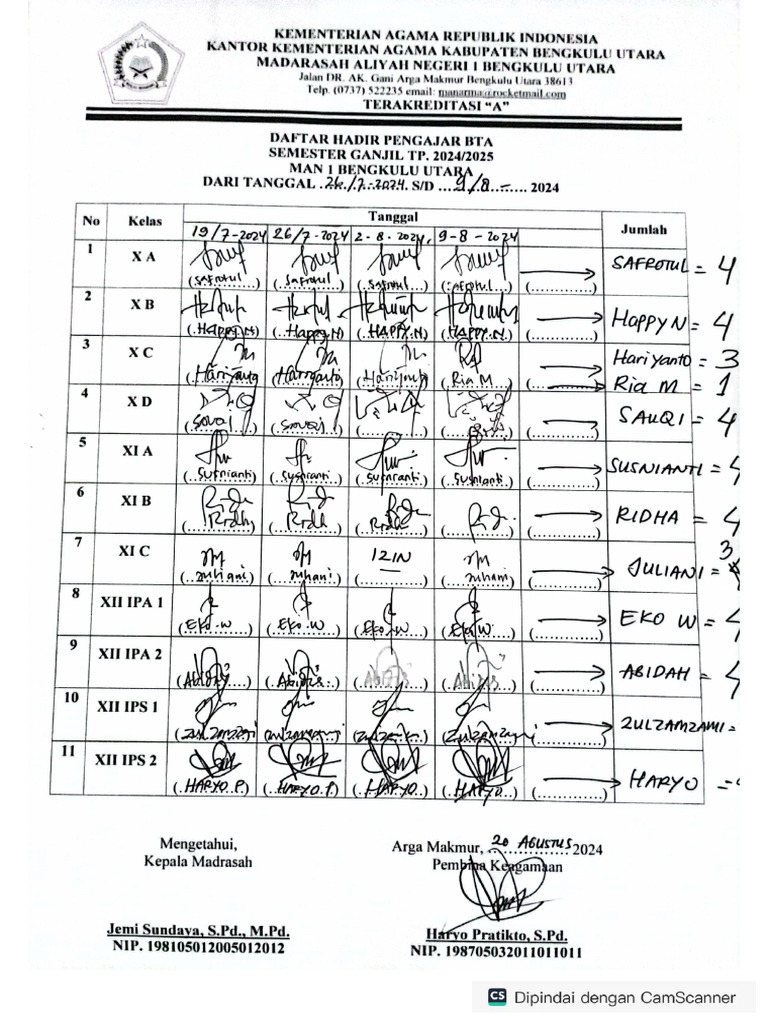 KEMENTERIAN AGAMA REPUBLIK INDONESIA
KANTOR KEMENTERIAN AGAMA KABUPATEN BENGKULU UTARA
MADARASAH ALIYAH NEGERI 1 BENGKULU UTARA
Jalan DR. AK. Gani Arga Makmur Bengkulu Utara 38613
Telp. (0737) 522235 email: manarma@rocketmail.com
TERAKREDITASI "A"
DAFTAR HADIR PENGAJAR BTA
SEMESTER GANJIL TP. 2024/2025
MAN 1 BENGKULU UTARA
DARI TANGGAL .26./7.-.2024. S/D ...9/8..-..... 2024
No Kelas Tanggal Jumlah
19/7-2024 26/7-2024 2-8-2024, 9-8-2024
1 X A (Safrotul) (Safrotul) (Safrotul) (Safrotul) (............) SAFROTUL = 4
2 X B (Happy N) (Happy N) (HAPPY.N) (HAPPY.N) (............) HAPPY N = 4
3 X C (Hariyanto) (Hariyanto) (Hariyanto) (Ria M) (............) Hariyanto = 3
Ria M = 1
4 X D (............) SAUQI = 4
5 XI A (Susnianti) (Susnianti) (Susnianti) (Susnianti) (............) SUSNIANTI = 4
6 XI B (Ridh) (Ridh) (............) RIDHA = 4
7 XI C IZIN (............) JULIANI = 3
8 XII IPA 1 (EKO.W) (EKO.W) (EKO.W) (EKO W) (............) EKO W = 4
9 XII IPA 2 (............) ABIDAH = 4
10 XII IPS 1 (Zulzamzami) (Zulzamzami) (Zulzamzami) (............) ZULZAMZAMI =
11 XII IPS 2 (HARYO.P.) (HARYO.P) (HARYO..) (HARYO..) (............) HARYO =
Mengetahui,
Kepala Madrasah
Arga Makmur, 20 AGUSTUS 2024
Pembina Keagamaan
Jemi Sundaya, S.Pd., M.Pd.
NIP. 198105012005012012
Haryo Pratikto, S.Pd.
NIP. 198705032011011011
CS Dipindai dengan CamScanner